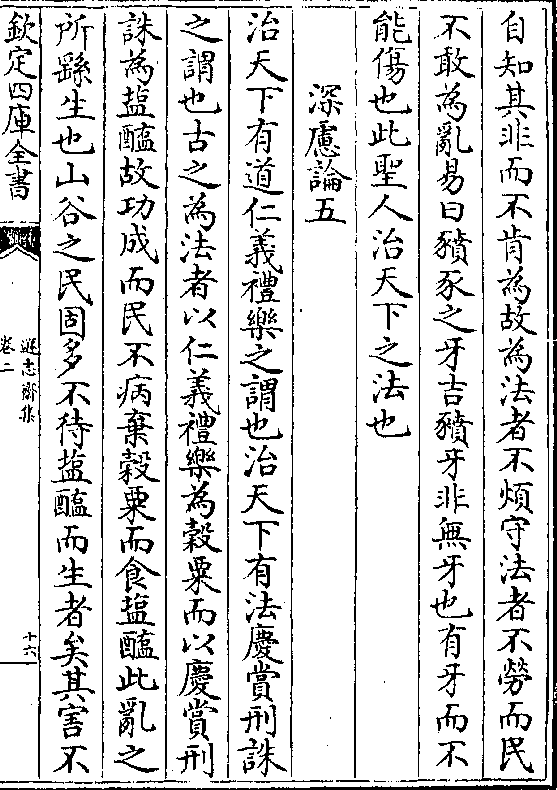 自知其非而不肯為故為法者不煩守法者不勞而民
不敢為亂易曰豶豕之牙吉豶牙非無牙也有牙而不
能傷也此聖人治天下之法也
深慮論五
治天下有道仁義禮樂之謂也治天下有法慶賞刑誅
之謂也古之為法者以仁義禮樂為穀粟而以慶賞刑
誅為塩醢故功成而民不病棄穀粟而食塩醢此亂之
所繇生也山谷之民固多不待塩醢而生者矣其害不
欽定四庫全書
遜志齋集
卷二
十六